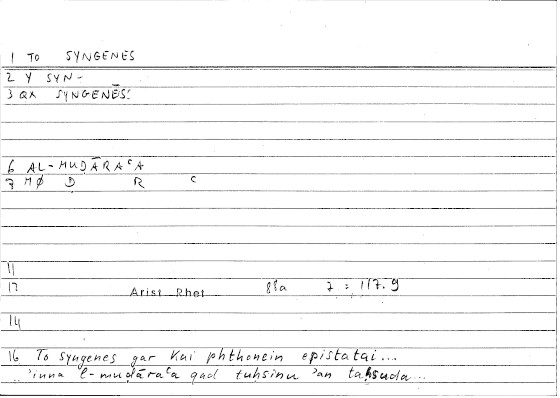 1 TO SYNGENES
2 Y SYN-
3 QX SYNGENĒS:
6 AL-MUḌĀRAʿA
7 MØ Ḍ R ʿ
11
12 Arist Rhet 88a 7 : 117.9
14
16 To syngenes gar kai phthonein epistatai...
ʾinna l-muḍāraʿa qad tuḥsinu ʾan taḥsuda...